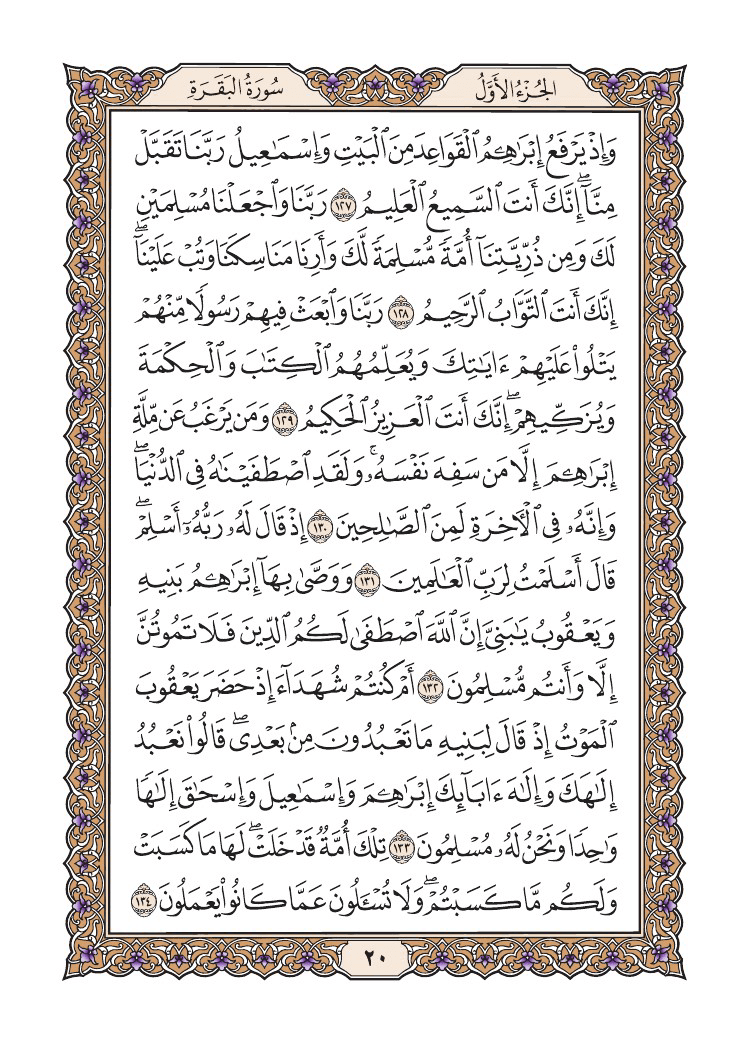 الجُزْءُ الأَوَّلُ
سُورَةُ البَقَرَةِ
وَإِذْ يَرْفَعُ إِبْرَٰهِـۧمُ ٱلْقَوَاعِدَ مِنَ ٱلْبَيْتِ وَإِسْمَـٰعِيلُ رَبَّنَا تَقَبَّلْ
مِنَّآۖ إِنَّكَ أَنتَ ٱلسَّمِيعُ ٱلْعَلِيمُ ١٢٧ رَبَّنَا وَٱجْعَلْنَا مُسْلِمَيْنِ
لَكَ وَمِن ذُرِّيَّتِنَآ أُمَّةً مُّسْلِمَةً لَّكَ وَأَرِنَا مَنَاسِكَنَا وَتُبْ عَلَيْنَآۖ
إِنَّكَ أَنتَ ٱلتَّوَّابُ ٱلرَّحِيمُ ١٢٨ رَبَّنَا وَٱبْعَثْ فِيهِمْ رَسُولًا مِّنْهُمْ
يَتْلُوا۟ عَلَيْهِمْ ءَايَـٰتِكَ وَيُعَلِّمُهُمُ ٱلْكِتَـٰبَ وَٱلْحِكْمَةَ
وَيُزَكِّيهِمْۖ إِنَّكَ أَنتَ ٱلْعَزِيزُ ٱلْحَكِيمُ ١٢٩ وَمَن يَرْغَبُ عَن مِّلَّةِ
إِبْرَٰهِـۧمَ إِلَّا مَن سَفِهَ نَفْسَهُۥۚ وَلَقَدِ ٱصْطَفَيْنَـٰهُ فِى ٱلدُّنْيَاۖ
وَإِنَّهُۥ فِى ٱلْـَٔاخِرَةِ لَمِنَ ٱلصَّـٰلِحِينَ ١٣٠ إِذْ قَالَ لَهُۥ رَبُّهُۥٓ أَسْلِمْۖ
قَالَ أَسْلَمْتُ لِرَبِّ ٱلْعَـٰلَمِينَ ١٣١ وَوَصَّىٰ بِهَآ إِبْرَٰهِـۧمُ بَنِيهِ
وَيَعْقُوبُ يَـٰبَنِىَّ إِنَّ ٱللَّهَ ٱصْطَفَىٰ لَكُمُ ٱلدِّينَ فَلَا تَمُوتُنَّ
إِلَّا وَأَنتُم مُّسْلِمُونَ ١٣٢ أَمْ كُنتُمْ شُهَدَآءَ إِذْ حَضَرَ يَعْقُوبَ
ٱلْمَوْتُ إِذْ قَالَ لِبَنِيهِ مَا تَعْبُدُونَ مِنۢ بَعْدِىۖ قَالُوا۟ نَعْبُدُ
إِلَـٰهَكَ وَإِلَـٰهَ ءَابَآئِكَ إِبْرَٰهِـۧمَ وَإِسْمَـٰعِيلَ وَإِسْحَـٰقَ إِلَـٰهًا
وَٰحِدًا وَنَحْنُ لَهُۥ مُسْلِمُونَ ١٣٣ تِلْكَ أُمَّةٌ قَدْ خَلَتْۖ لَهَا مَا كَسَبَتْ
وَلَكُم مَّا كَسَبْتُمْۖ وَلَا تُسْـَٔلُونَ عَمَّا كَانُوا۟ يَعْمَلُونَ ١٣٤
٢٠